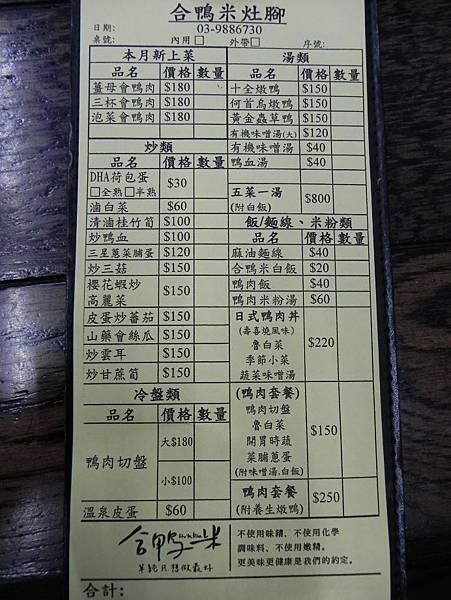 合鴨米灶腳
日期: 03-9886730
桌號: 內用□ 外帶□ 序號:
本月新上菜
品名 價格 數量
薑母會鴨肉 $180
三杯會鴨肉 $180
泡菜會鴨肉 $180
炒類
品名 價格 數量
DHA荷包蛋 $30
□全熟□半熟
滷白菜 $60
清滷桂竹筍 $100
炒鴨血 $100
三星蔥菜脯蛋 $120
炒三菇 $150
櫻花蝦炒 $150
高麗菜
皮蛋炒蕃茄 $150
山藥會絲瓜 $150
炒雲耳 $150
炒甘蔗筍 $150
冷盤類
品名 價格 數量
鴨肉切盤 大$180
小$100
溫泉皮蛋 $60
湯類
品名 價格 數量
十全燉鴨 $150
何首烏燉鴨 $150
黃金蟲草鴨 $150
有機味噌湯(大) $120
有機味噌湯 $40
鴨血湯 $40
五菜一湯 $800
(附白飯)
飯/麵線、米粉類
品名 價格 數量
麻油麵線 $40
合鴨米白飯 $20
鴨肉飯 $40
鴨肉米粉湯 $60
日式鴨肉丼 $220
(壽喜燒風味)
魯白菜
季節小菜
蔬菜味噌湯
(鴨肉套餐) $150
鴨肉切盤
魯白菜
開胃時蔬
菜脯蔥蛋
(附味噌湯.白飯)
鴨肉套餐 $250
(附養生燉鴨)
合鴨米
單純只想做最好
不使用味精、不使用化學
調味料、不使用嫩精。
更美味更健康是我們的約定。
合計: